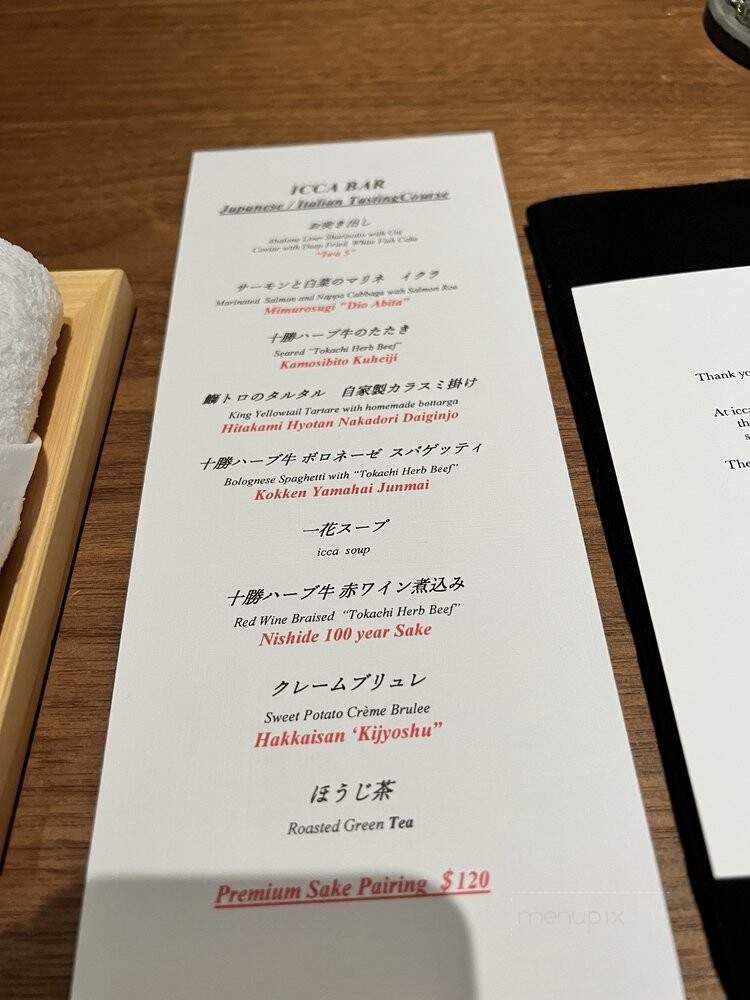 ICCA BAR
Japanese / Italian TastingCourse
お突き出し
Abalone Liver Shurimatu with Uni
Caviar with Deep Fried White Fish Cake
サーモンと白菜のマリネ イクラ
Marinated Salmon and Nappa Cabbage with Salmon Roe
Mimurosugi "Dio Abita"
十勝ハーブ牛のたたき
Seared "Tokachi Herb Beef"
Kamosibito Kuheiji
鰤トロのタルタル 自家製カラスミ掛け
King Yellowtail Tartare with homemade bottarga
Hitakami Hyotan Nakadori Daiginjo
十勝ハーブ牛 ボロネーゼ スパゲッティ
Bolognese Spaghetti with "Tokachi Herb Beef"
Kokken Yamahai Junmai
一花スープ
icca soup
十勝ハーブ牛 赤ワイン煮込み
Red Wine Braised "Tokachi Herb Beef"
Nishide 100 year Sake
クレームブリュレ
Sweet Potato Crème Brulee
Hakkaisan 'Kijyoshu"
ほうじ茶
Roasted Green Tea
Premium Sake Pairing $120
Thank yo
At icca
th
s
The
menupix